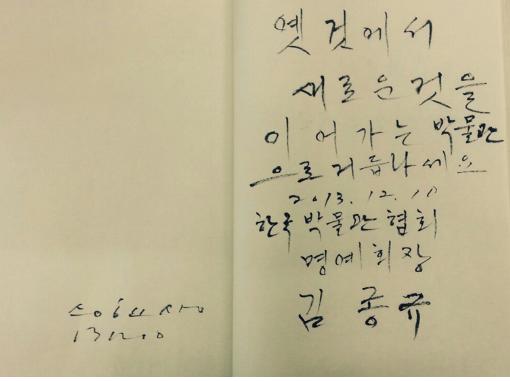 13.12.10
옛것에서
새로운것을
이어가는 박물관
으로 거듭나세요
2013.12.10
한국박물관협회
명예회장
김종규